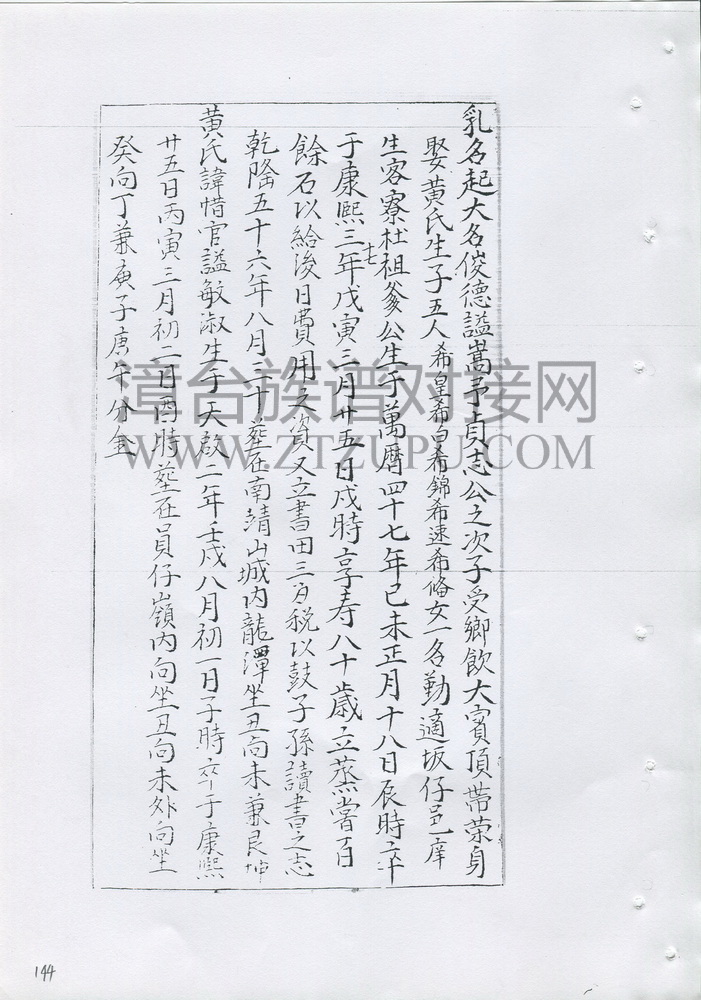 乳名起大名俊德謚嵩予貞志公之次子受鄉飲大賓頂帶荣身
娶黃氏生子五人希皇希白希錦希速希脩女一名勤適坂仔邑庠
生客寮社祖爹公生于萬曆四十七年己未正月十八日辰時卒
于康熙三十七年戊寅三月廿五日戌時享寿八十歲立蒸嘗百
餘石以給後日費用之資又立書田三石税以鼓子孫讀書之志
乾隆五十六年八月三十塟在南靖山城内龍潭坐丑向未兼艮坤
黃氏諱惜官謚敏淑生于天啟二年壬戌八月初一日子時卒于康熙
廿五日丙寅三月初二日酉時塟在員仔嶺内向坐丑向未外向坐
癸向丁兼庚子庚午分金
漳台族谱对接网
WWW.ZTZUPU.COM
144